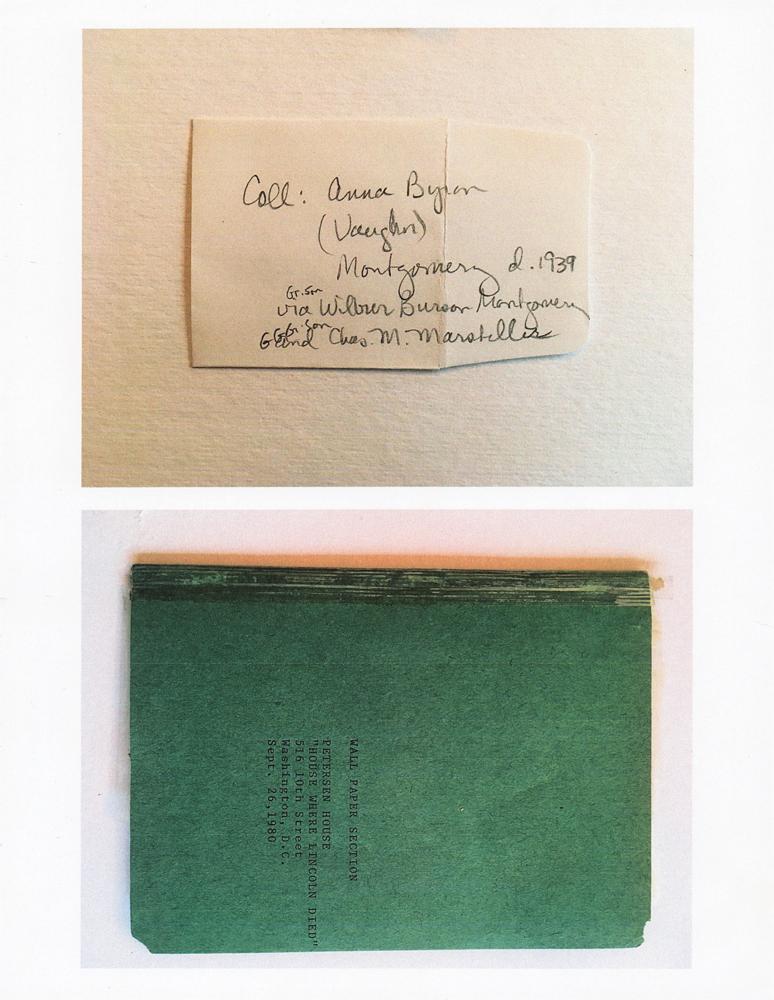 Coll: Anna Byron
(Vaughn)
Montgomery d. 1939
Gr. Son
via Wilber Burson Montgomery
G G Gr. Son
and Chas. M. Marsteller
WALL PAPER SECTION
PETERSEN HOUSE
"HOUSE WHERE LINCOLN DIED"
516 10th Street
Washington, D.C.
Sept. 26,1980